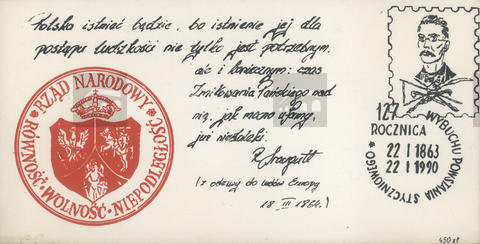 Polska istnieć będzie, bo istnienie jej dla
postępu ludzkości nie tylko jest potrzebnym,
ale i koniecznym: czas
Zmiłowania Pańskiego nad
nią, jak mocno ufamy,
już niedaleki.
R Traugutt
(z odezwy do ludów Europy
18 III 1864.)
RZĄD NARODOWY
RÓWNOŚĆ * WOLNOŚĆ * NIEPODLEGŁOŚĆ
127
ROCZNICA
WYBUCHU POWSTANIA STYCZNIOWEGO *
22 I 1863
22 I 1990
450 zł